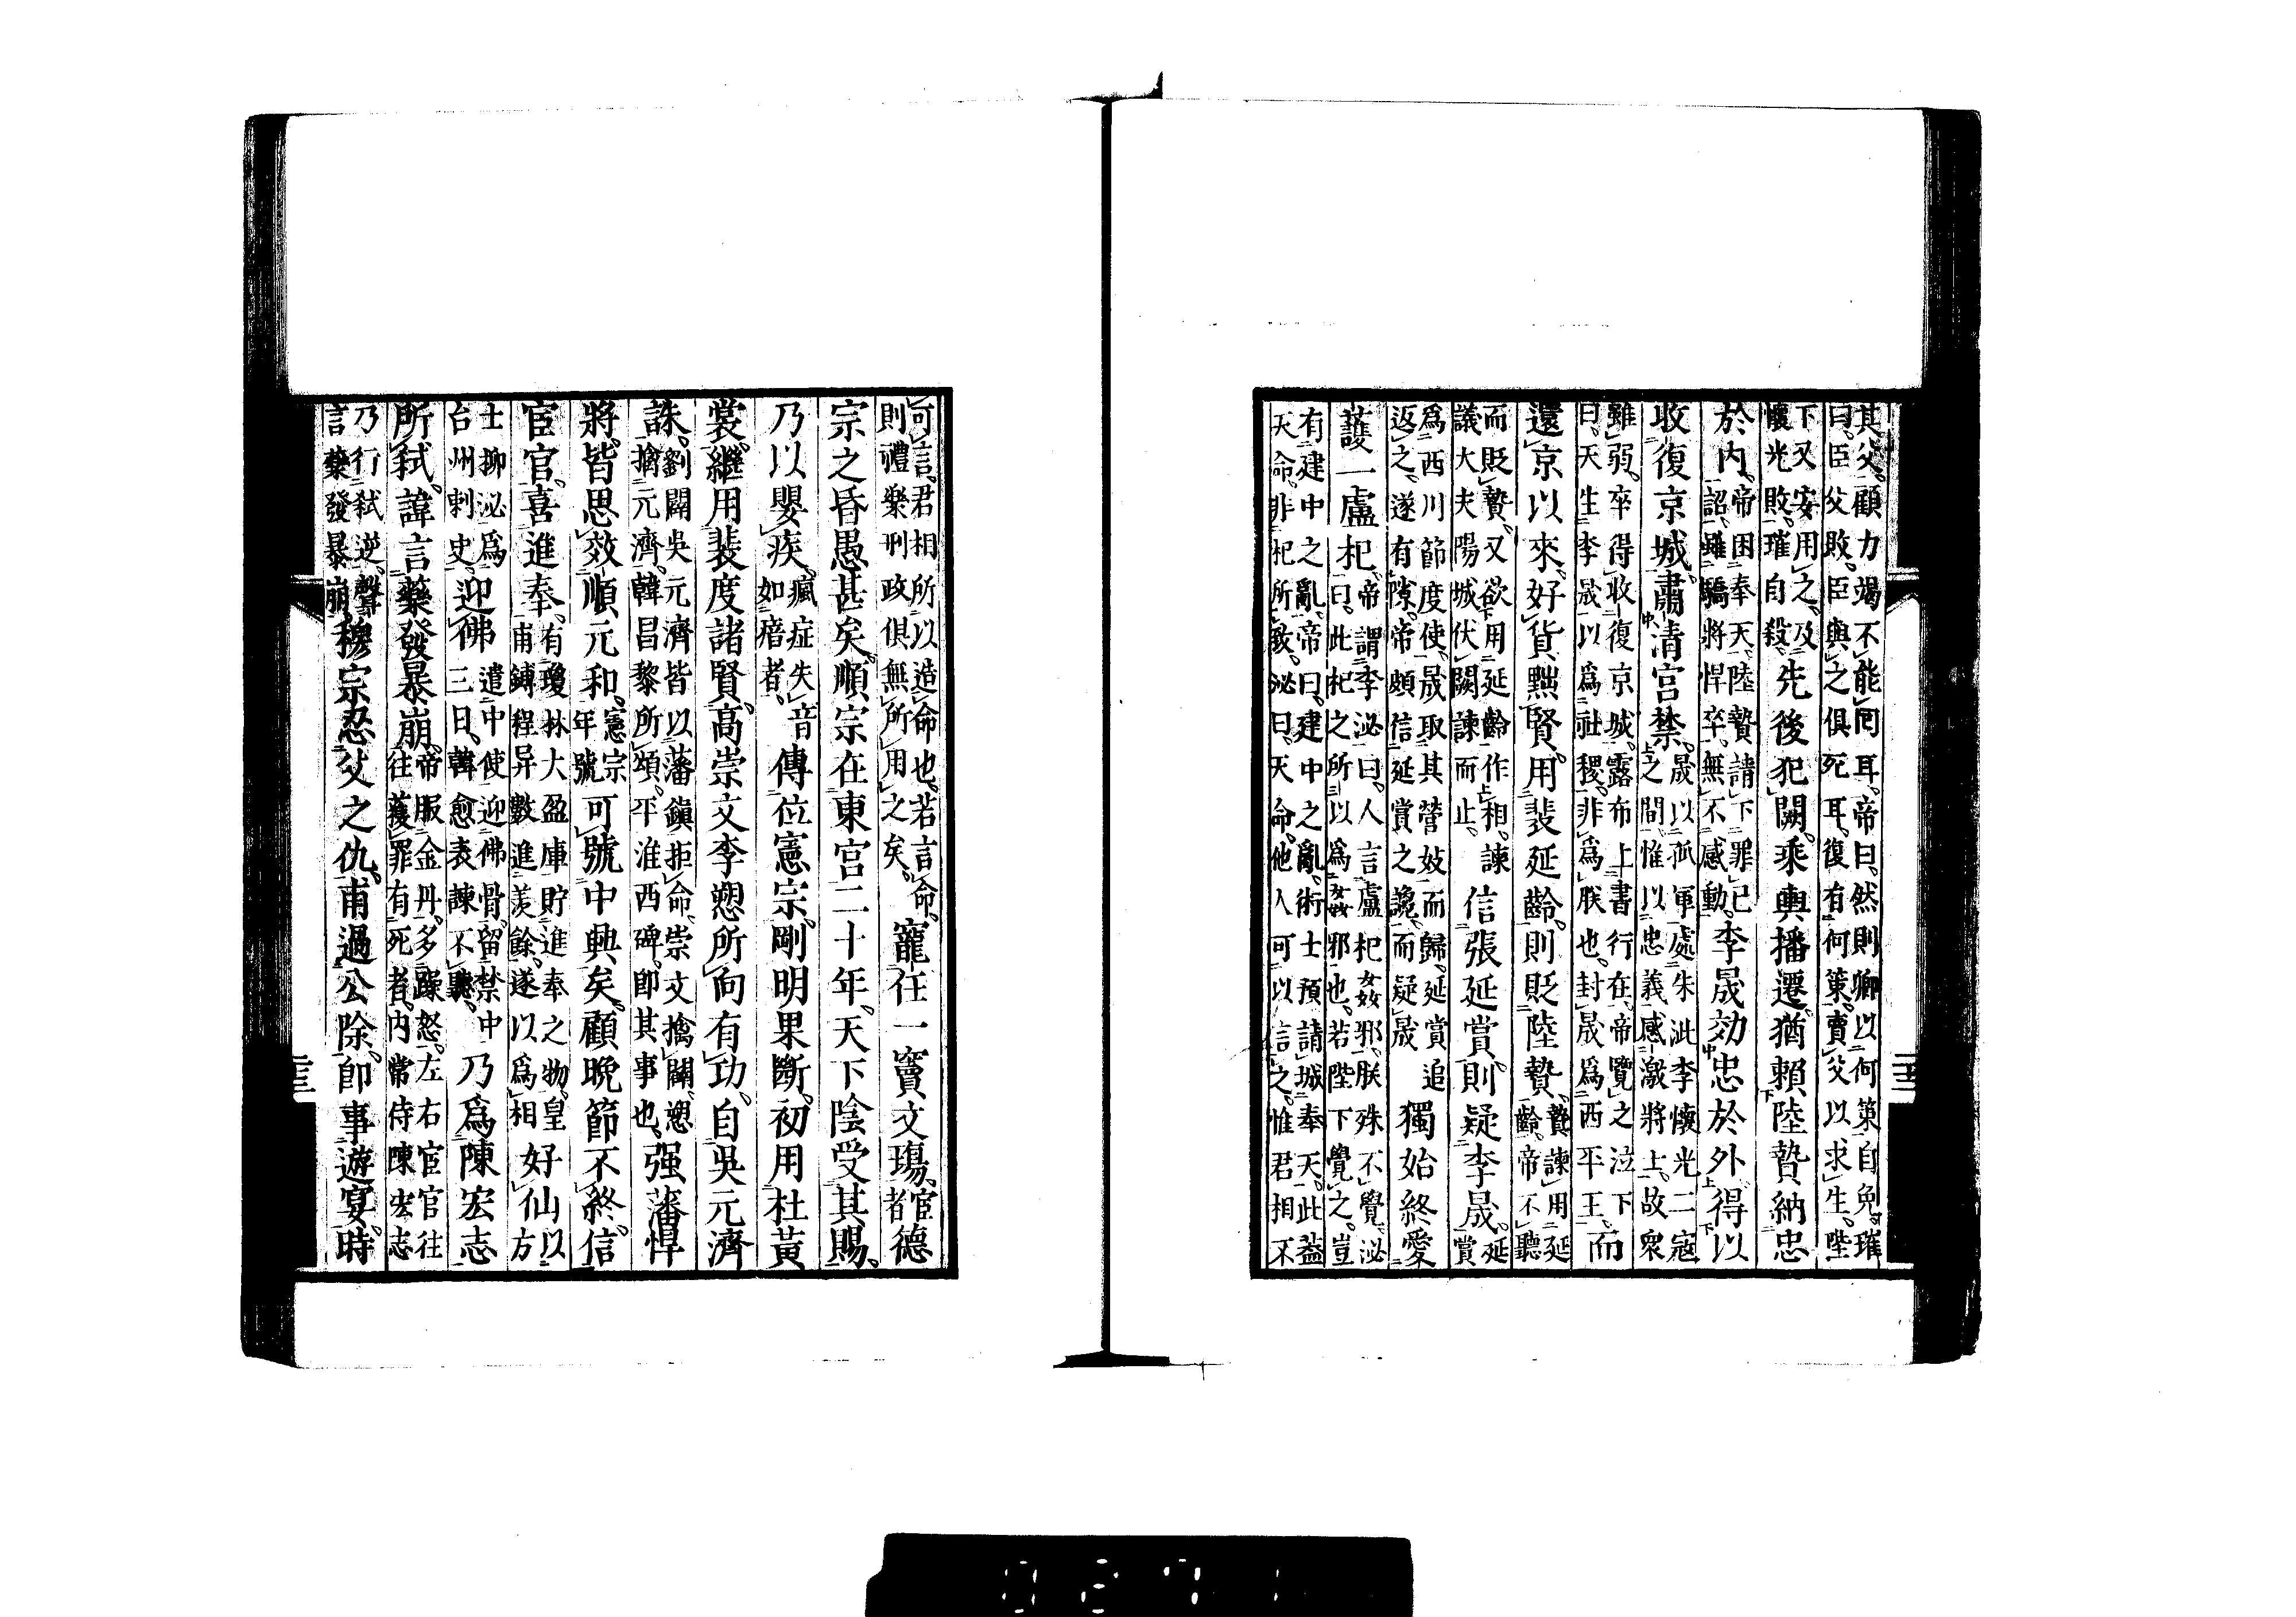 其父。顧力竭不能回耳。帝曰。然則卿以何策自免。璀
曰。臣父敗。臣與之俱死耳。復有何策。賣父以求生。陛
下又安用之。及
懷光敗。璀自殺。
先後犯闕。乘輿播遷。猶賴陸贄納忠
於內。
帝困奉天。陸贄請下罪已
詔。雖驕將悍卒。無不感動。
李晟効忠於外。得以
收復京城。肅清宮禁。
晟以孤軍處朱泚李懷光二寇
之間。惟以忠義感激將士。故衆
雖弱。卒得收復京城。露布上書行在。帝覽之泣下
曰。天生李晟以爲社稷。非爲朕也。封晟爲西平王。
而
還京以來。好貨黜賢。用裴延齡。則貶陸贄。
贄諫用延
齡。帝不聽
而貶贄。又欲用延齡作相。諫
議大夫陽城伏闕諫而止。
信張延賞。則疑李晟。
延
賞
爲西川節度使。晟取其營妓而歸。延賞追
返之。遂有隙。帝頗信延賞之讒。而疑晟
獨始終愛
護一盧杞。
帝謂李泌曰。人言盧杞姦邪。朕殊不覺。泌
曰。此杞之所以爲姦邪也。若陛下覺之。豈
有建中之亂。帝曰。建中之亂。術士預請城奉天。此蓋
天命。非杞所致。泌曰。天命。他人可以信之。惟君相不
可言。君相所以造命也。若言命。
則禮樂刑政俱無所用之矣。
寵任一竇文瑒。
宦
者
德
宗之昏愚甚矣。順宗在東宮二十年。天下陰受其賜。
乃以嬰疾。
瘋症失音
如瘖者。
傳位憲宗。剛明果斷。初用杜黃
裳。繼用裴度諸賢。高崇文李愬所向有功。自吳元濟
誅。
劉闢吳元濟皆以藩鎮拒命。崇文擒闢。愬
擒元濟。韓昌黎所頌。平淮西碑。即其事也。
强藩悍
將。皆思效順。元和。
憲宗
年號
可號中興矣。顧晚節不終。信
宦官。喜進奉。
有瓊林大盈庫貯進奉之物。皇
甫鎛程异數進羨餘。遂以爲相
好仙
以
方
士柳泌爲
台州刺史。
迎佛
遣中使迎佛骨。留禁中
三日。韓愈表諫不聽。
乃爲陳宏志
所弒。諱言藥發暴崩。
帝服金丹。多躁怒。左右宦官往
往獲罪有死者。內常侍陳宏志
乃行弒逆。聲
言藥發暴崩。
穆宗忍父之仇。甫過公除。即事遊宴。時